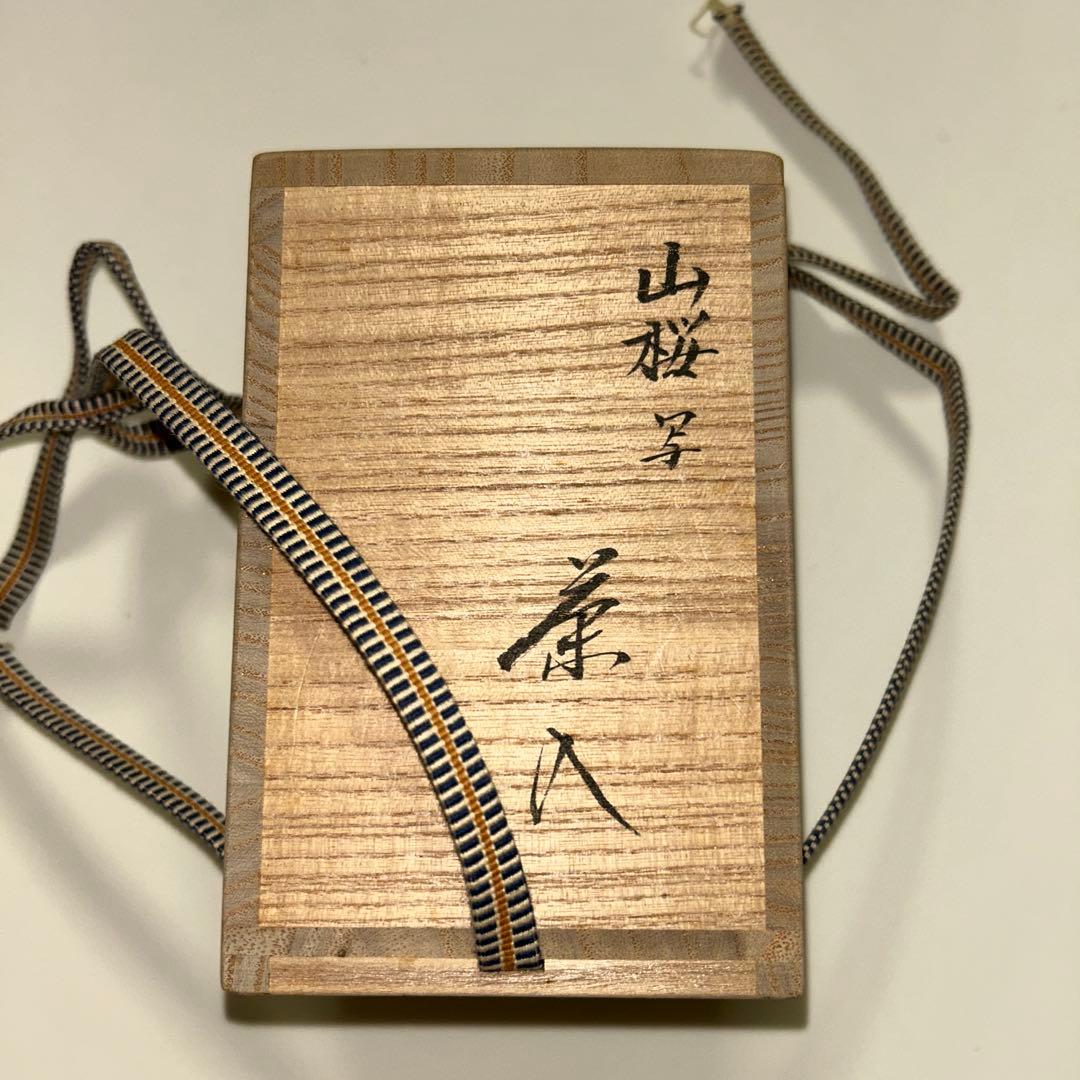 山桜写
茶入